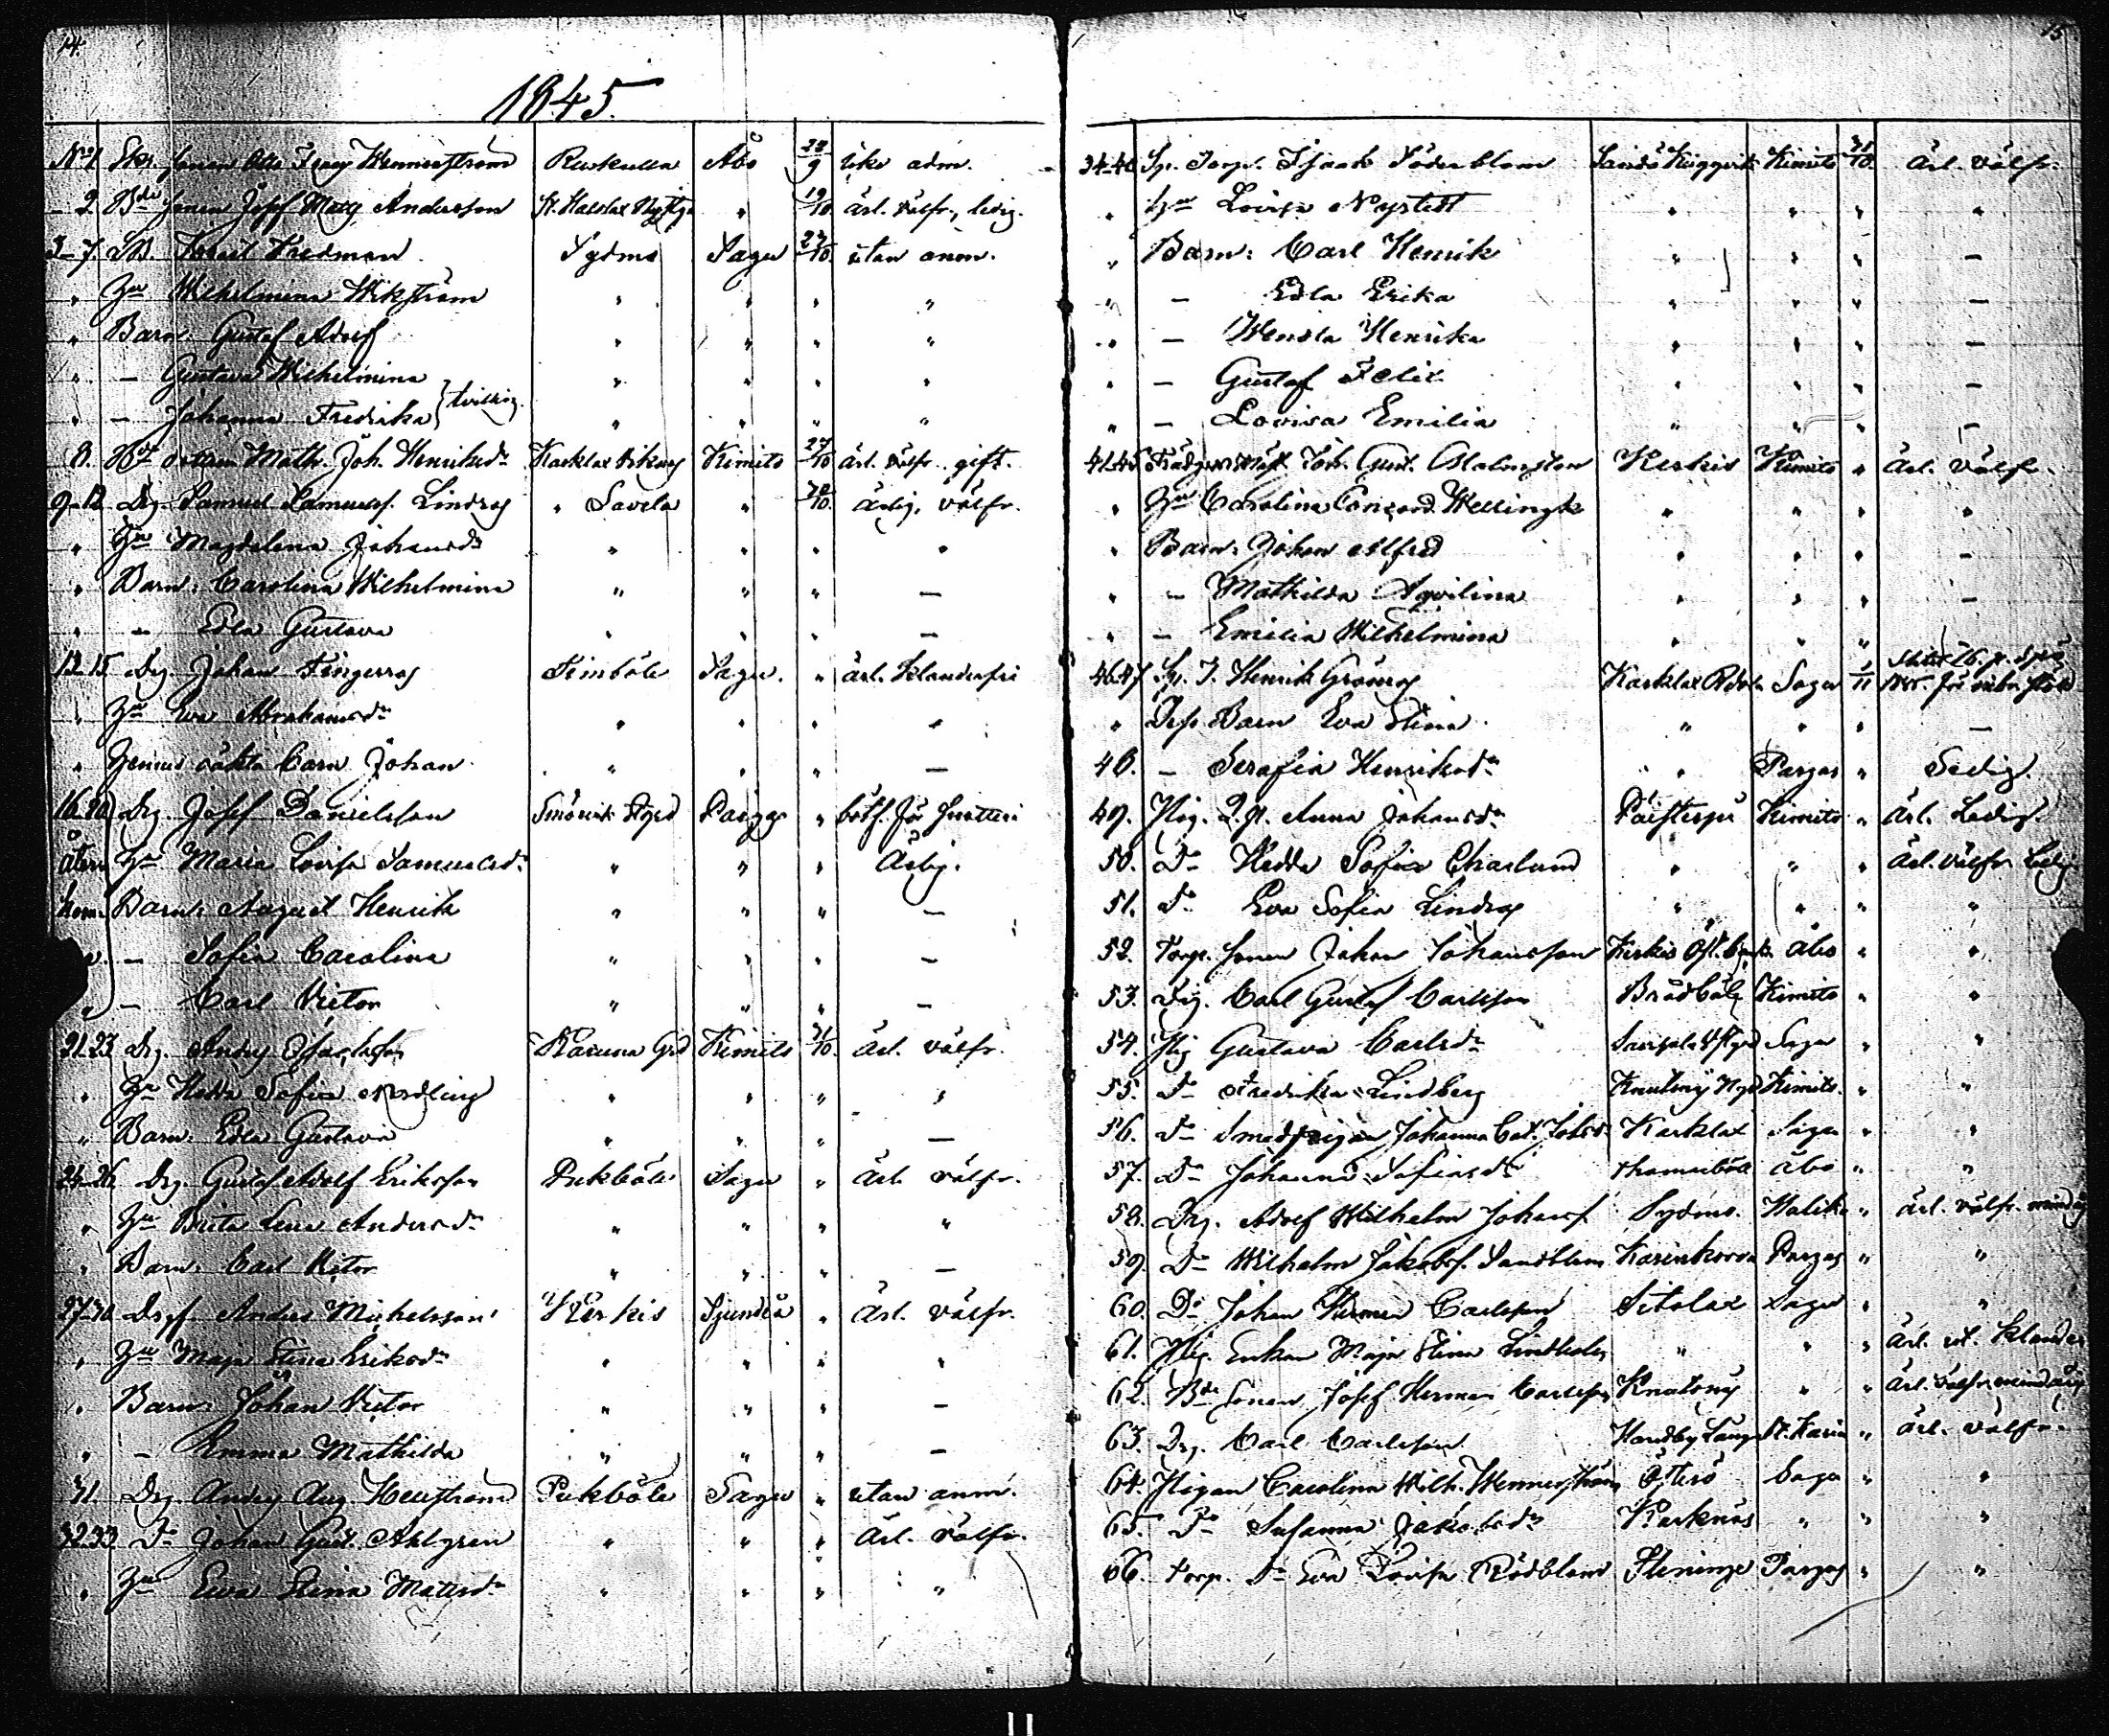 14.
1845.
No 1. Otto Wennerström Ruskulla Åbo 28/9 icke adm.
2. Sonen Josef Matts Andersson St. 19/10. ärl. välfr., ledig.
3-7. Israil Fredman Sydmo Sagu 23/10. utan anm.
" Hu Wilhelmina Wikström " " " "
" Barn: Gustaf Adolf " " " "
" — Gustava Wilhelmina " " " "
" — Johanna Fredrika } tvilling. " " " "
8. Math. Joh. Henriksdr Karklax Kimito 27/10 ärl. välfr. gift.
9-12. Drg. Samuel Samuelss. Lindros " Savela " 30/10. Ärlig, välfr.
" Hu Magdalena Johansdr " " " "
" Barn: Carolina Wilhelmina " " " —
" — Edla Gustava " " " —
13-15 Drg. Johan Fingerros Simböle Sagu. " ärl. klanderfri
" Hu Eva Abrahamsdr " " " "
" Hennes oäkta barn Johan " " " —
16-20 Drg. Josef Danielsson Pargas " bötf. för snatteri
Åter Hu Maria Lovisa Samuelsdr " " " Ärlig.
kom. Barn: August Henrik " " " —
" — Sofia Carolina " " " —
" — Carl Victor " " " —
21-23 Drg. Anders Karuna Gd Kimito 31/10. Ärl. välfr.
" Hu Hedda Sofia Nordling " " " "
" Barn: Edla Gustava " " " —
24-26 Drg. Gustaf Adolf Eriksson Pukböle Sagu " Ärl. välfr.
" Hu Brita Lena Andersdr " " " "
" Barn: Carl Victor " " " —
27-30 Anders Michelsson Kerkis Sjundeå " Ärl. välfr.
" Hu Maja Stina Eriksdr " " " "
" Barn: Johan Victor " " " —
" — Emma Mathilda " " " —
31. Drg. Anders Aug. Hellström Pukböle Sagu " utan anm.
32-33 Do Johan Gust. Ahlgren " " " Ärl. välfr.
" Hu Ewa Stina Mattsdr " " " "
15
34-40 Isaak Söderblom Sandö Kimito 31/10. Ärl. välfr.
" Hu Lovisa Nystedt " " " "
" Barn: Carl Henrik " " " —
" — Edla Erika " " " —
" — Wendla Henrika " " " —
" — Gustaf Felix " " " —
" — Lovisa Emilia " " " —
41-45 Joh. Gust. Malmsten Kerkis Kimito " Ärl. välfr.
" Hu Carolina Concord. Wellingk " " " "
" Barn: Johan Alfred " " " —
" — Mathilda Aqvilina " " " —
" — Emilia Wilhelmina " " "
46-47 J. Henrik Grönros Karklax Sagu 1/11
" Dess Barn Eva Stina " " " —
48. — Serafia Henriksdr " Pargas " Ledig.
49. Pig. Anna Johansdr Päisterpä Kimito " Ärl. Ledig.
50. Do Hedda Sofia Charlund " " " Ärl. välfr. Ledig
51. Do Eva Sofia Lindros " " " "
52. Torp. sonen Johan Johansson Kerkis Åbo " "
53. Drg. Carl Gustaf Carlsson Brådböle Kimito " "
54. Pig Gustava Carlsdr Sagu " "
55. Do Fredrika Lindberg Kimito. " "
56. Do Smedpigan Johanna Cat. Karklax Sagu " "
57. Do Johanna Sofiasdr Åbo " "
58. Drg. Adolf Wilhelm Johanss. Sydmo Haliko " ärl. välfr. myndig
59. Do Wilhelm Jakobss. Sandblom Pargas " "
60. Do Johan Herman Carlsson Sitolax Sagu " "
61. Pig. Enkan Maja Stina " " "
62. Sonen Josef Herman Carlsson " " Ärl. välfr.
63. Drg. Carl Carlsson St. Karin " ärl. välfr.
64. Pigan Carolina Wilh. Wennerström Österö Sagu " "
65. Do Susanna Jakobsdr Karknäs " " "
66. Torp. Do Eva Lovisa Rödblom Pargas " "